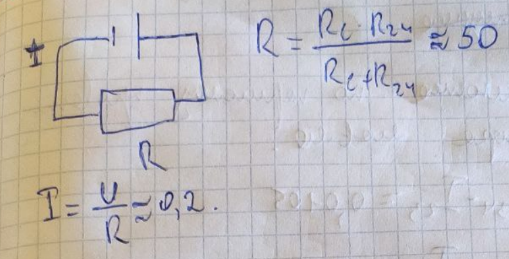 I
R = (R_C · R_24) / (R_C + R_24) ≈ 50
R
I = U / R ≈ 0,2.